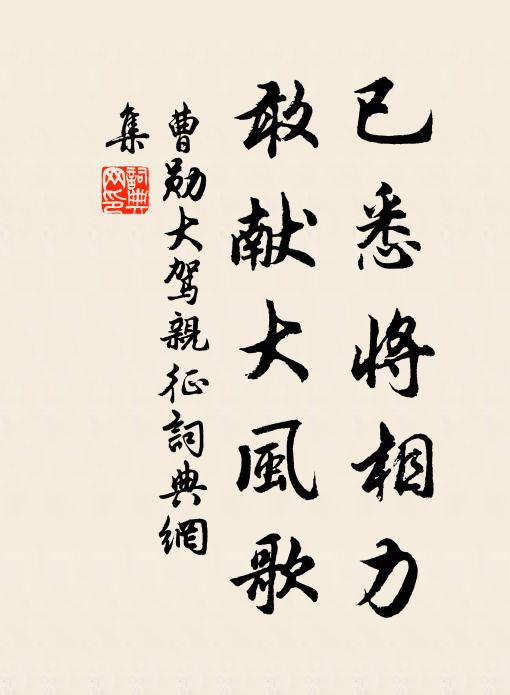 已悉將相力
敢献大風歌
曹勛大駕親征詞典網
集
詞典网印